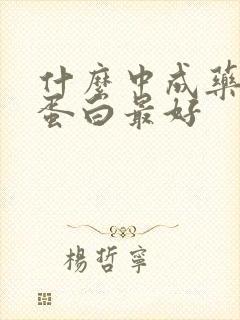 什麼中成藥
蛋白最好
楊哲寧